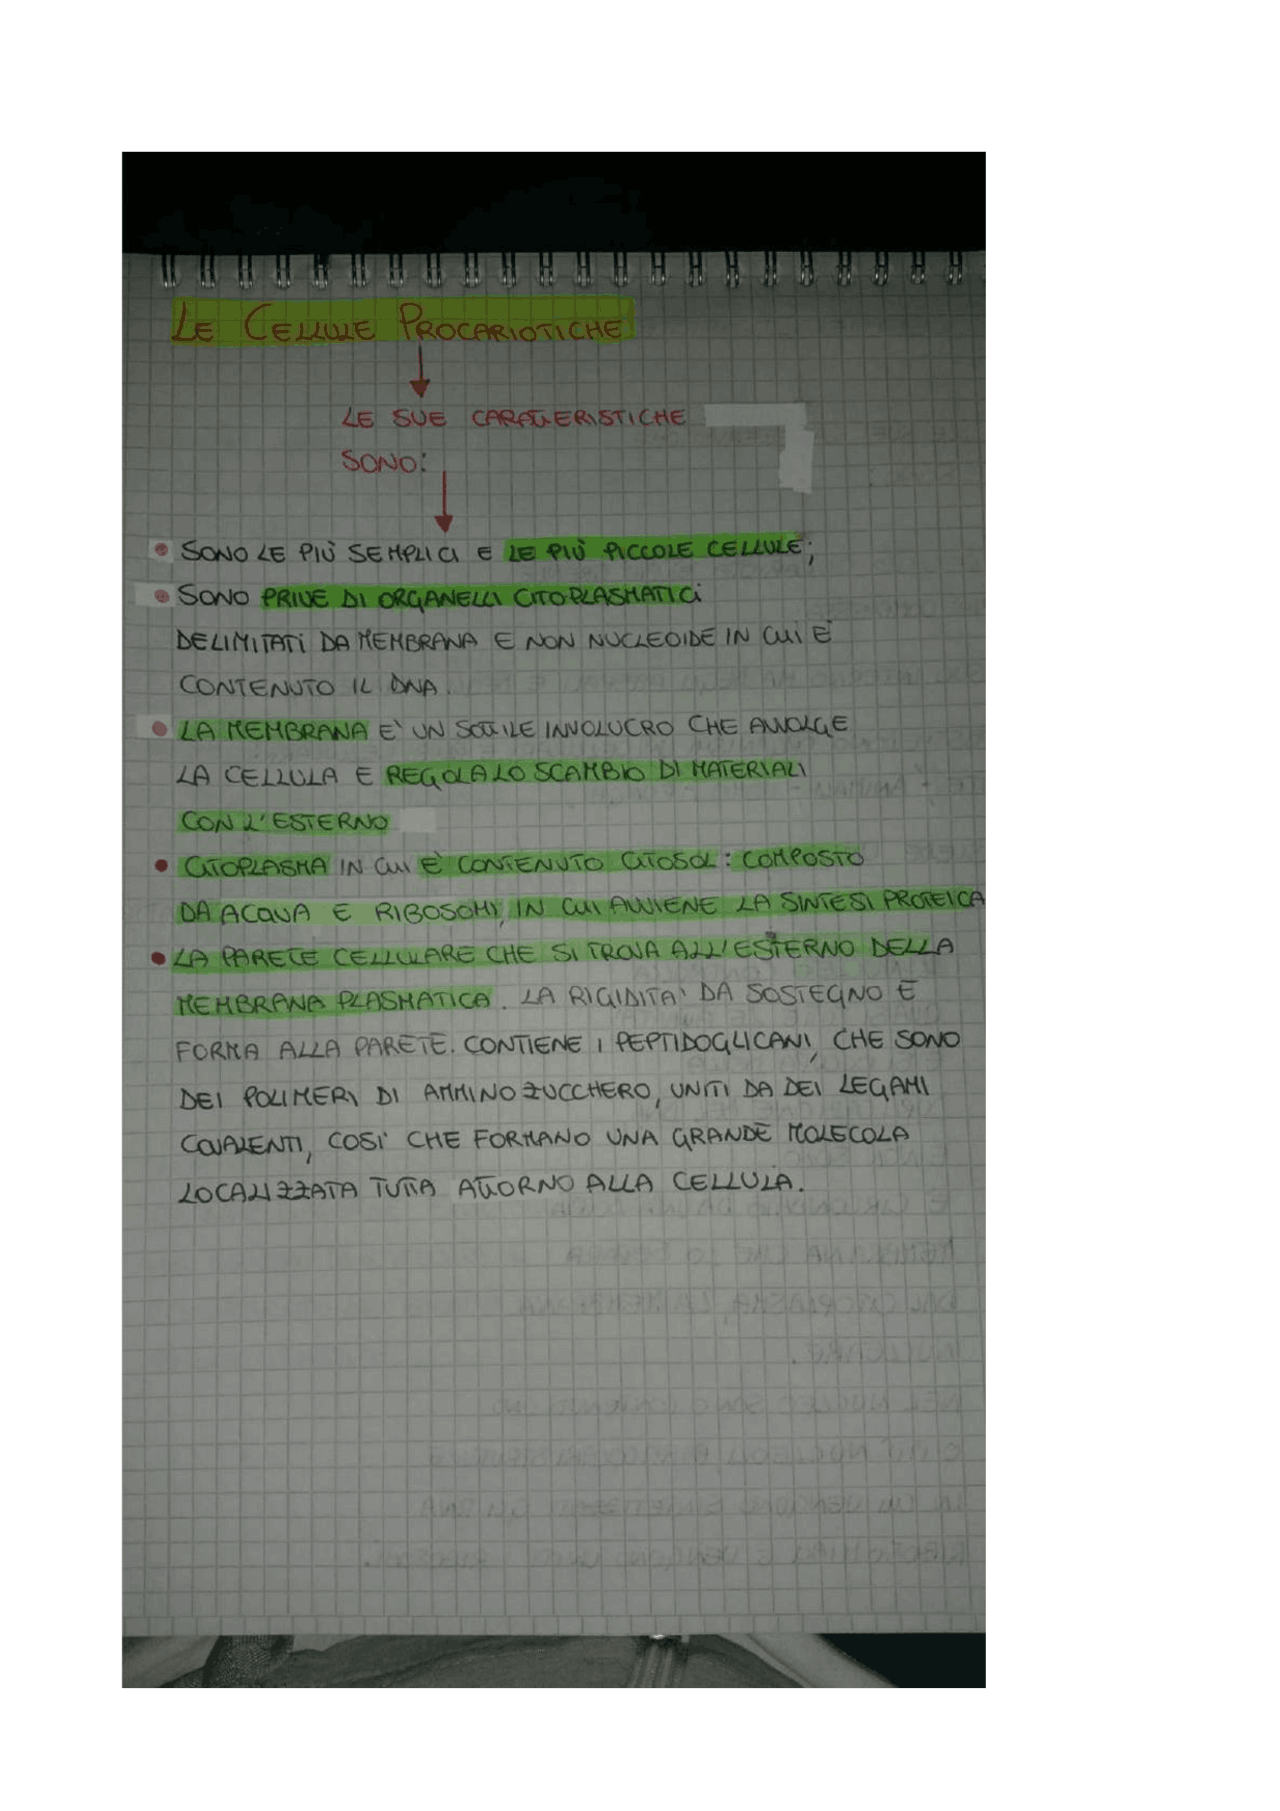 LE CELLULE PROCARIOTICHE
LE SUE CARATTERISTICHE
SONO:
• SONO LE PIÙ SEMPLICI E LE PIÙ PICCOLE CELLULE;
• SONO PRIVE DI ORGANELLI CITOPLASMATICI
DELIMITATI DA MEMBRANA E NON NUCLEOIDE IN CUI E'
CONTENUTO IL DNA.
• LA MEMBRANA E' UN SOTTILE INVOLUCRO CHE AVVOLGE
LA CELLULA E REGOLA LO SCAMBIO DI MATERIALI
CON L'ESTERNO
• CITOPLASMA IN CUI E' CONTENUTO CITOSOL: COMPOSTO
DA ACQUA E RIBOSOMI, IN CUI AVVIENE LA SINTESI PROTEICA
• LA PARETE CELLULARE CHE SI TROVA ALL'ESTERNO DELLA
MEMBRANA PLASMATICA. LA RIGIDITA' DA SOSTEGNO E
FORMA ALLA PARETE. CONTIENE I PEPTIDOGLICANI, CHE SONO
DEI POLIMERI DI AMMINOZUCCHERO, UNITI DA DEI LEGAMI
COVALENTI, COSI' CHE FORMANO UNA GRANDE MOLECOLA
LOCALIZZATA TUTTA ATTORNO ALLA CELLULA.